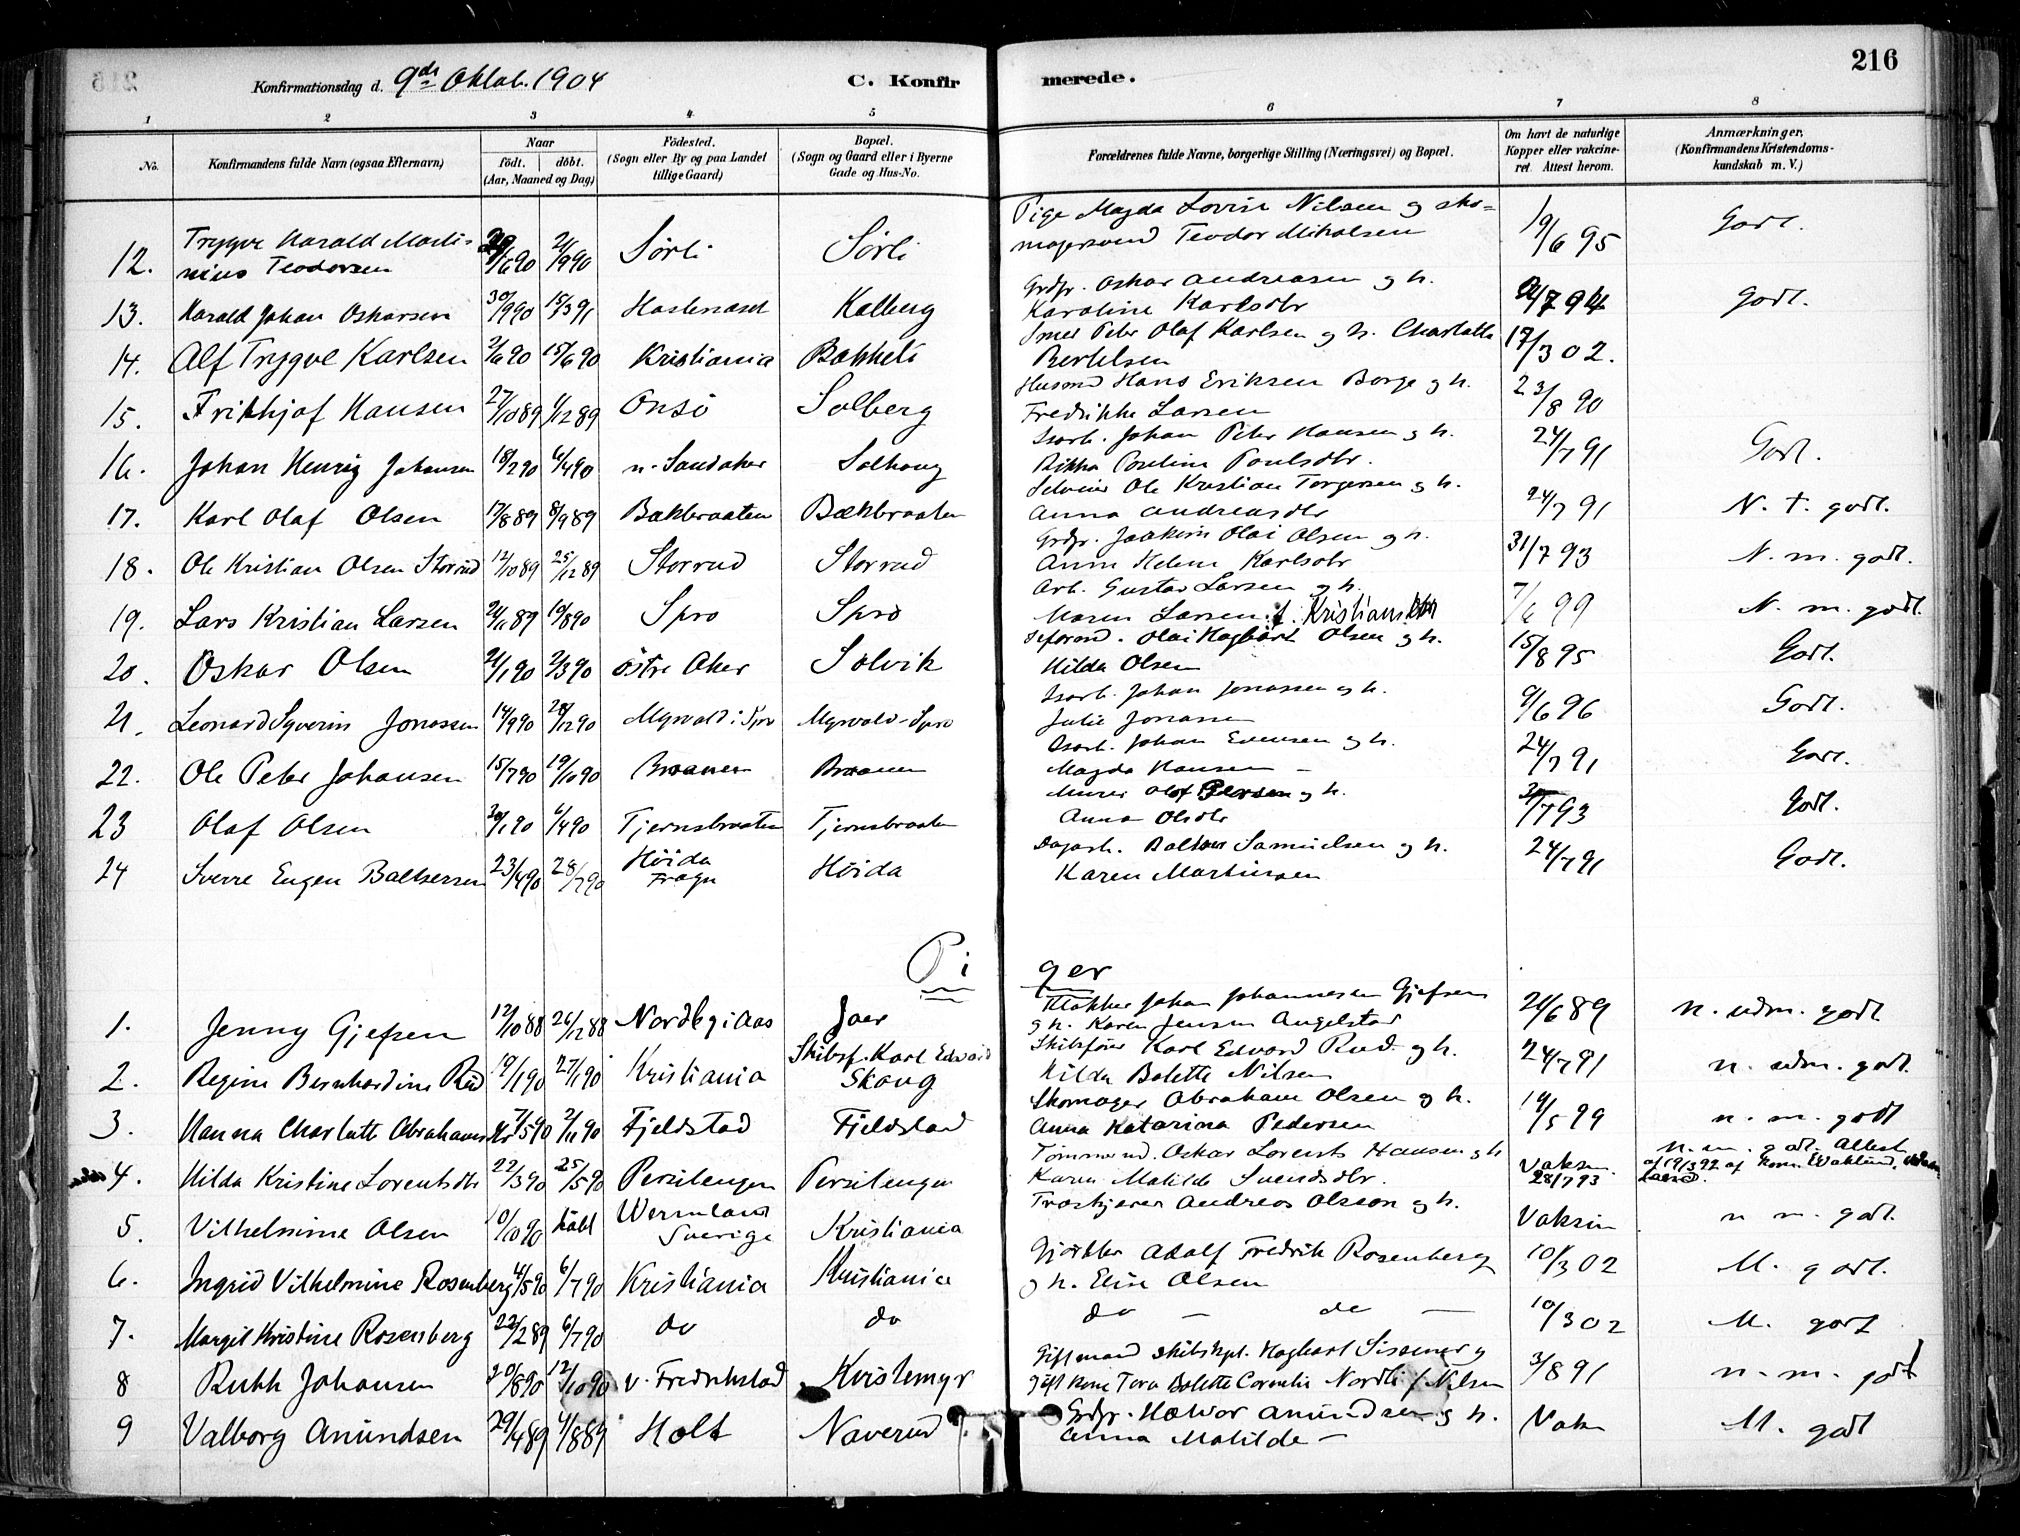 216
Konfirmationsdag d. 9de Oktob. 1904
C. Konfirmerede.
1 2 3 4 5 6 7 8
No.
Konfirmandens fulde Navn (ogsaa Efternavn)
Naar
födt. döbt.
(Aar, Maaned og Dag)
Födested.
(Sogn eller By og paa Landet
tillige Gaard)
Bopæl.
(Sogn og Gaard eller i Byerne
Gade og Hus-No.
Forældrenes fulde Navne, borgerlige Stilling (Næringsvei) og Bopæl.
Om havt de naturlige
Kopper eller vakcine-
ret Attest herom.
Anmærkninger.
(Konfirmandens Kristendoms-
kundskab m. V.)
Pige Magda Lovise Nilsen og sko=
12. Trygve Harald Marti-
nius Teodorsen 21/9 90 Sørli Sørli magersvend Teodor Mikalsen 19/6 95 Godt.
Grdbr. Oskar Andreasen og h.
13. Harald Johan Oskarsen 30/9 90 15/3 91 Kalberg Karoline Karlsdtr Godt.
Smed Peter Olaf Karlsen og h. Charlotte
14. Alf Trygve Karlsen 2/6 90 15/6 90 Kristiania Bakkeli Bertelsen 17/3 02.
Husmd Hans Eriksen Borge og h.
15. Frithjof Hansen 27/10 89 1/12 89 Onsö Solberg Fredrikke Larsen 23/8 90
Isarb. Johan Peter Hansen og h.
16. Johan Henrig Johansen 18/2 90 6/4 90 n. Sandaker Solhaug Rikka Pouline Poulsdtr. 24/7 91 Godt.
Selveier Ole Kristian Torgersen og h.
17. Karl Olaf Olsen 17/8 89 8/9 89 Bækbraaten Bækbraaten Anna Andreasdtr 24/7 91 N. t. godt.
Grdbr. Joakim Olai Olsen og h.
18. Ole Kristian Olsen Storrud 12/10 89 25/12 89 Storrud Storrud Anne Helene Karlsdtr 31/7 93 N. m. godt.
Arb. Gustav Larsen og h.
19. Lars Kristian Larsen 24/11 89 19/8 90 Spro Spro Maren Larsen f. Kristiansdtr 7/6 99 N. m. godt.
Olai Hagbart Olsen og h.
20. Oskar Olsen 21/1 90 2/3 90 Östre Aker Solvik Hilda Olsen 15/8 95 Godt.
Isarb. Johan Jonassen og h.
21. Leonard Syverin Jonassen 14/9 90 28/12 90 Myrvold i Spro Myrvold-Spro Julie Jonassen 9/6 96 Godt.
Isarb. Johan Evensen og h.
22. Ole Peter Johansen 15/7 90 19/10 90 Braanen Braanen Magda Hansen - 24/7 91 Godt.
Murer Olaf Persen og h.
23 Olaf Olsen 30/1 90 6/4 90 Tjernsbraaten Tjernsbraaten Anna Olsdtr 31/7 93 Godt.
Dagarb. Baltser Samuelsen og h.
24 Sverre Eugen Baltsersen 23/4 90 28/7 90 Höida
Frogn Höida Karen Martinsen 24/7 91 Godt.
Piger
Klokker Johan Johannesen Gjefsen
1. Jenny Gjefsen 12/10 88 26/12 88 Nordby i Aas Jaer og h. Karen Jensen Angelstad 21/6 89 n. udm. godt
Skibsfører Karl Edvard Rud og h.
2. Regine Bernhardine Rud 19/1 90 27/1 90 Kristiania Skibsf. Karl Edvard
Skaug Hilda Bolette Nilsen 24/7 91 n. udm. godt.
Skomager Abraham Olsen og h.
3. Hanna Charlotte Abrahamsdtr 7/5 90 2/11 90 Fjeldstad Fjeldstad Anna Katarina Pedersen 19/5 99 n. m. godt
Tømmermd. Oskar Lorents Hansen og h
4. Hilda Kristine Lorentsdtr 22/3 90 25/5 90 Persilengen Persilengen Karen Matilde Svendsdtr. Vaksin.
28/7 93 n. m. godt. Attest
Andreas Olsson og h.
5. Vilhelmine Olsen 10/10 90 döbt Wermland
Sverige Kristiania Vaksin n m. godt.
Gjørtler Adolf Fredrik Rosenberg
6. Ingrid Vilhelmine Rosenberg 4/5 90 6/7 90 Kristiania Kristiania og h. Elise Olsen 10/3 02 M. godt.
7. Margit Kristine Rosenberg 22/2 89 6/7 90 do do do - do - 10/3 02 M. godt
Gift mand skibskpt. Hagbart Sissener og
8 Ruth Johansen 20/8 90 12/10 90 v. Fredrikstad Kvistemyr gift kone Tora Bolette Cornelia Nordli f. Nilsen 3/8 91 n. m. godt
Grdbr. Halvor Amundsen og h.
9 Valborg Amundsen 29/4 89 4/8 89 Holt Naverud Anna Matilde - Vaks M. godt